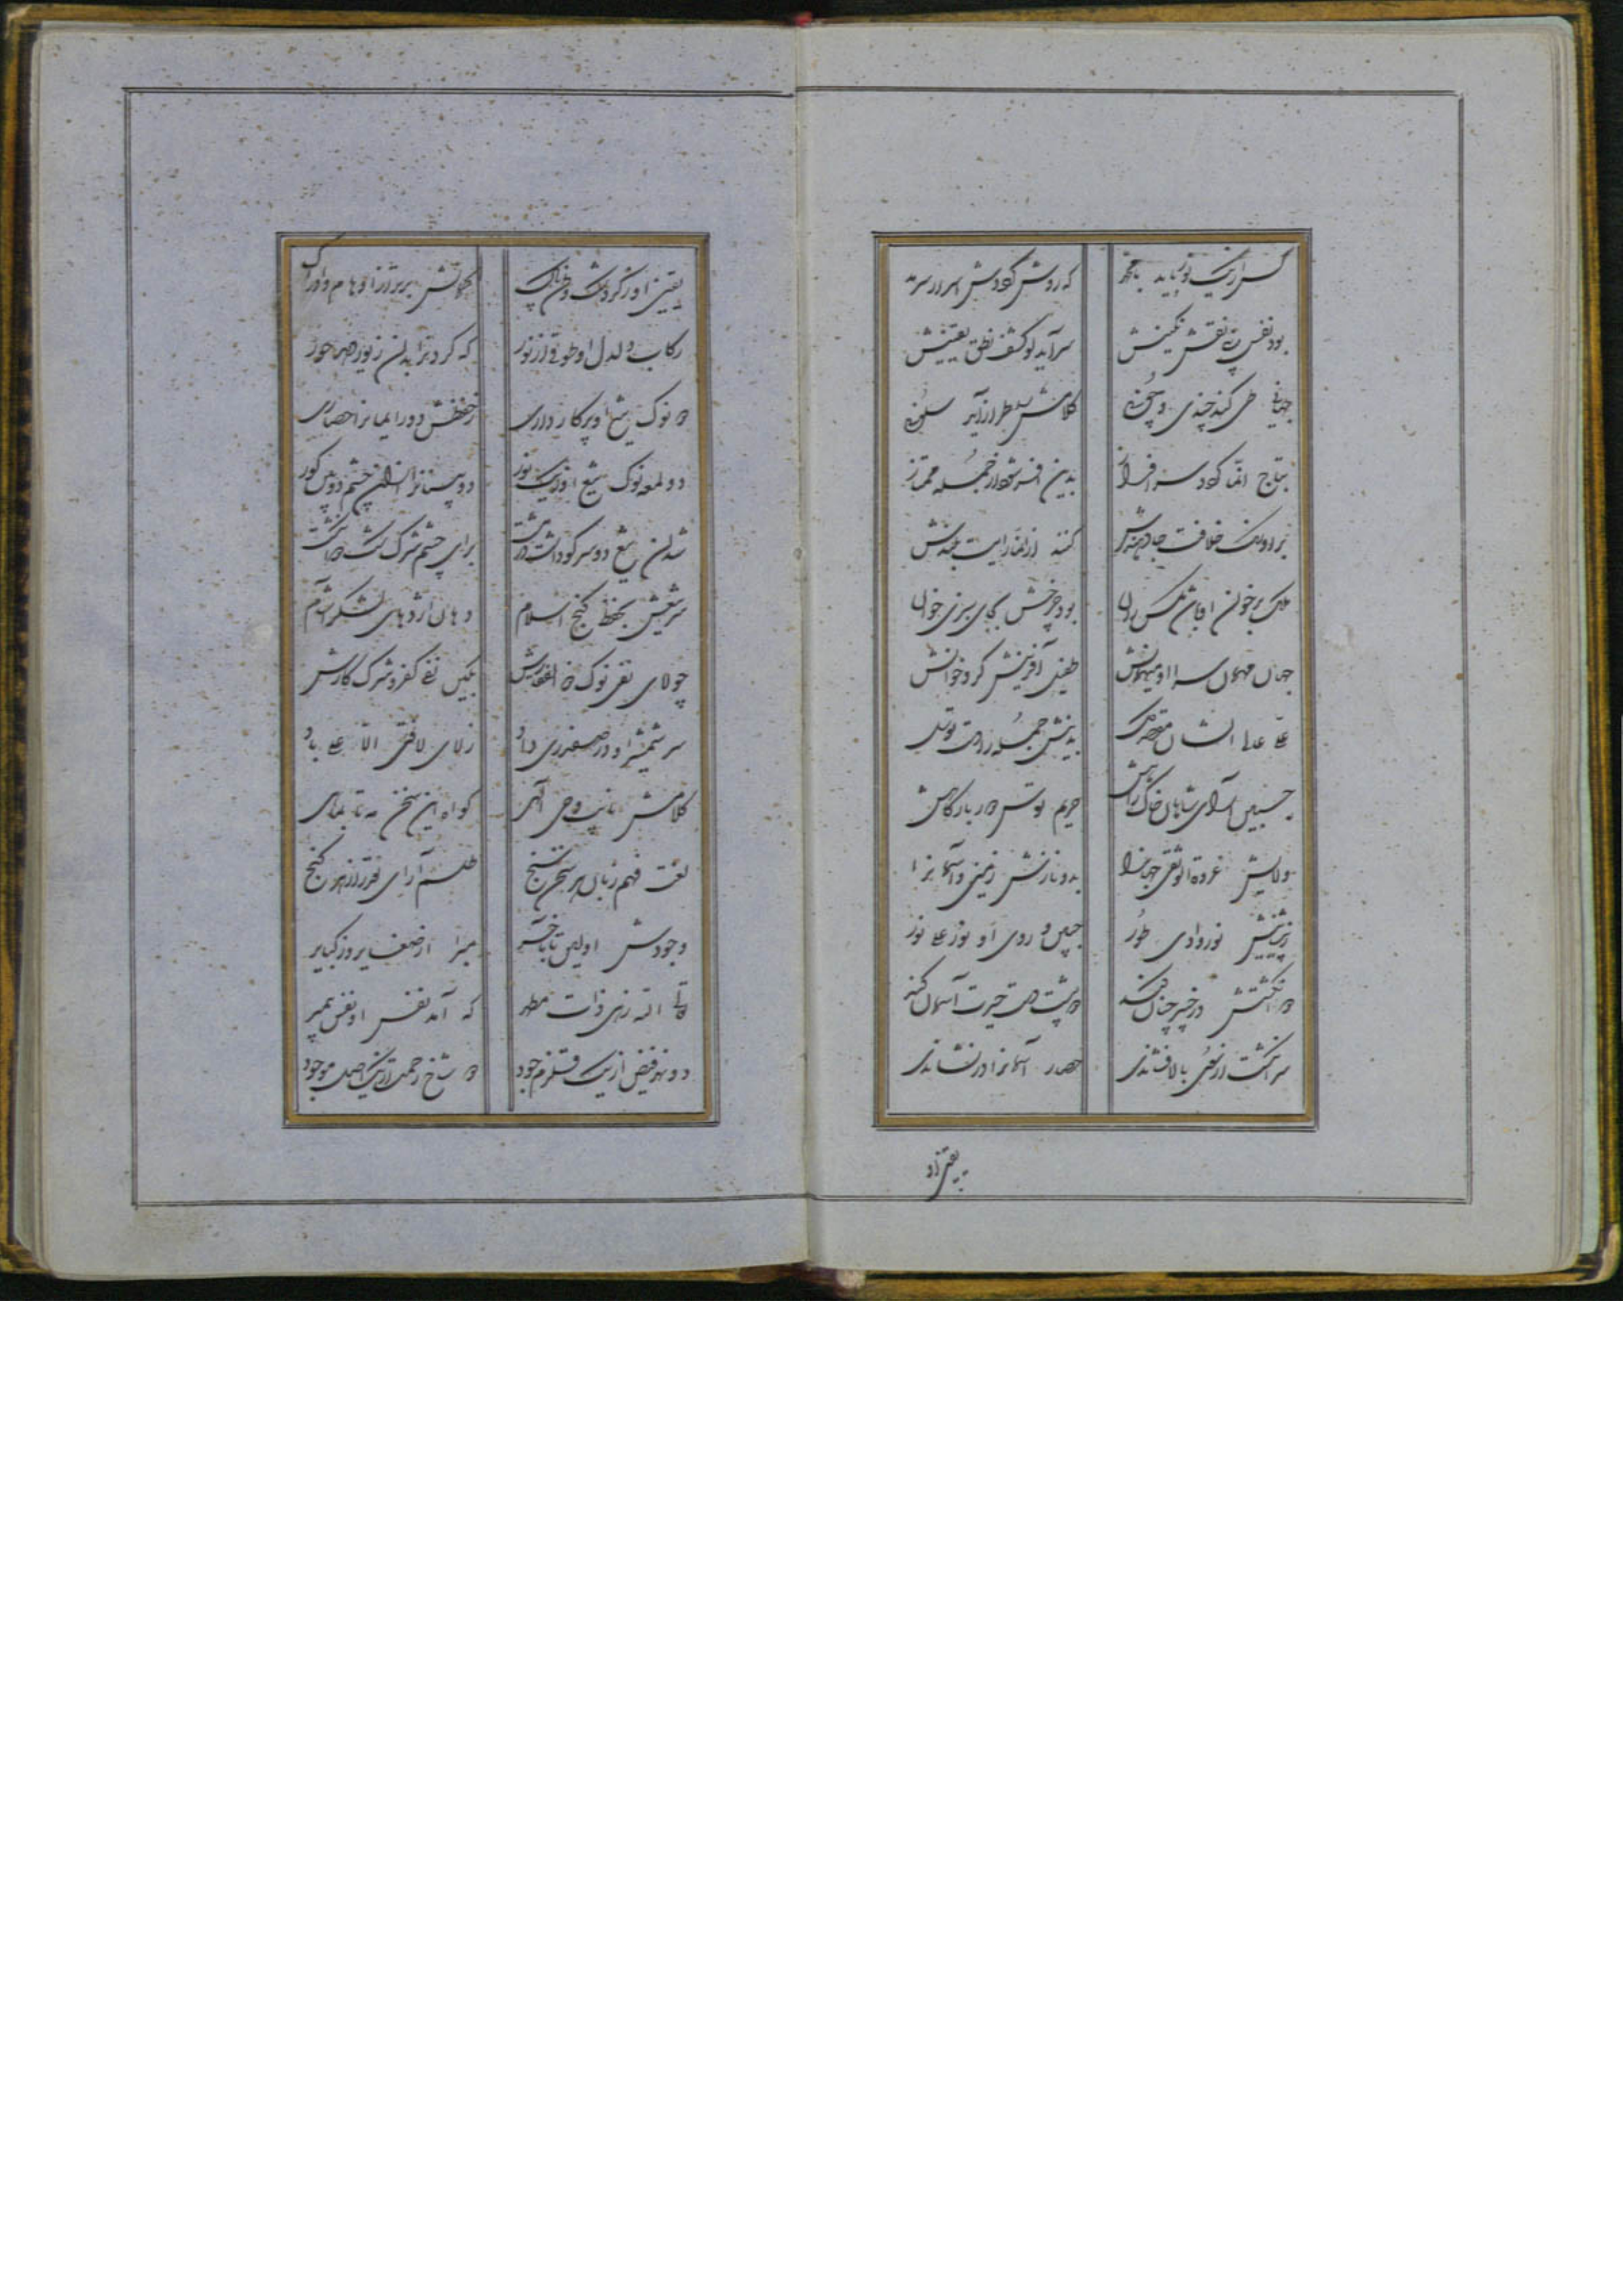 که روش بر سر آید
بود نفس نقش نگینش
سر آید لو کشف نطق یقینش
جهانی طی کند چندی و چونی
کلامش را طراز آیه سلونی
بتاج انما سرافراز
بدین افسر شد از جمله ممتاز
بر اورنگ خلافت جا دهندش
کنند از انما رایت بلندش
ملک بر خوان او باشد مگس ران
بود چرخش بجای سبزی خوان
جهان مهمان سرا او میهمانش
طفیل آفرینش گرد خوانش
علی عالی الشان مقصد کل
بذیلش جمله را دست توسل
جبین آرای شاهان خاک راهش
حریم قدس در بارگاهش
ولایش عروة الوثقی جهانرا
بدو نازش زمین و آسمانرا
ز پیشانیش نور وادی طور
جبین و روی او نور علی نور
دو انگشتش در خیبر چنان کند
که پشت دست حیرت آسمان کند
سرانگشت ار سوی بالا فشاندی
حصار آسمانرا در نشاندی
یقین او
یقین او ز گرد شک و ظن پاک
گمانش برتر از اوهام و ادراک
رکاب دلدل او طوقی از نور
که گردن را بدان زیور دهد حور
دو نوک تیغ او پرکار داری
ز خطش دور ایمانرا حصاری
دو لمعه نوک تیغ او ز یک نور
دو بینانرا ازان چشم دو بین کور
شد آن تیغ دو سر کو داشت در مشت
برای چشم شرک و شک دو انگشت
سر تیغش بحفظ گنج اسلام
دهان اژدهای لشکر آشام
چو لای نفی نوک ذوالفقارش
بگیتی نفی کفر و شرک کارش
سر شمشیر او در صفدری داد
ز لای لا فتی الا علی یاد
کلامش نایب وحی الهی
گواه این سخن مه تا بماهی
لغت فهم زبان هر سخن سنج
طلسم آرای راز نقد هر گنج
وجودش اولین تا بآخر
مبرا از صغایر وز کبایر
تعالی الله زهی ذات مطهر
که آمد نفس او نفس پیمبر
دو نهر فیض از یک قلزم جود
دو شاخ رحمت از یک اصل موجود